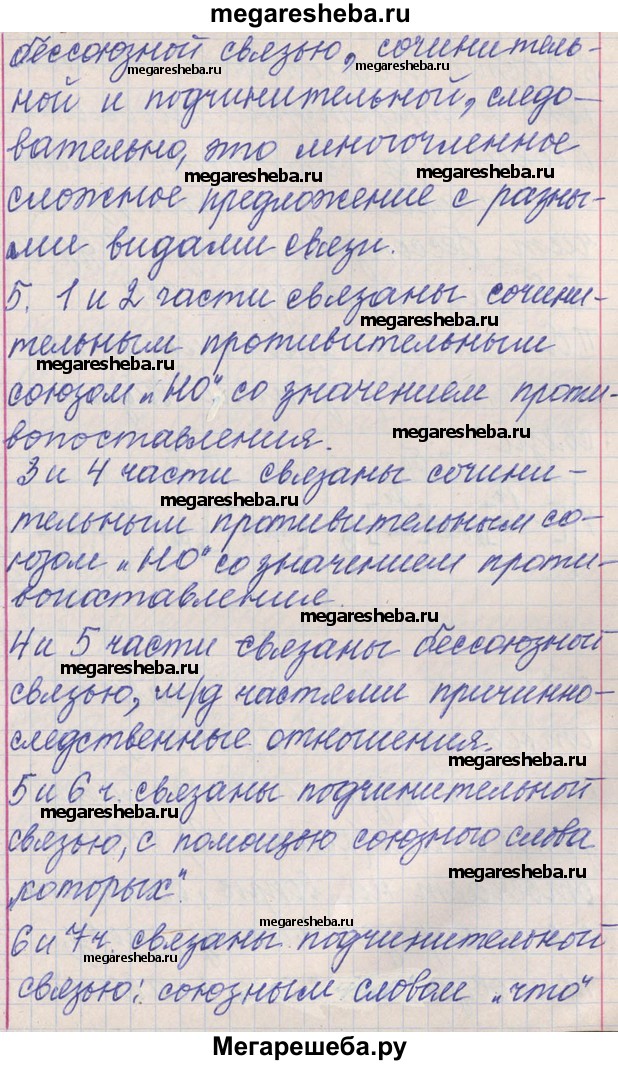 megaresheba.ru
бессоюзной связью, сочинитель-
megaresheba.ru
megaresheba.ru
ной и подчинительной, следо-
вательно, это многочленное
megaresheba.ru
megaresheba.ru
сложное предложение с разны-
ми видами связи.
5. 1 и 2 части связаны сочини-
megaresheba.ru
тельным противительным
megaresheba.ru
союзом „НО“ со значением проти-
вопоставления.
megaresheba.ru
3 и 4 части связаны сочини-
megaresheba.ru
тельным противительным со-
юзом „НО“ со значением проти-
вопоставления.
megaresheba.ru
4 и 5 части связаны бессоюзной
megaresheba.ru
связью, м/д частями причинно-
следственные отношения.
megaresheba.ru
5 и 6 ч. связаны подчинительной
megaresheba.ru
связью, с помощью союзного слова
megaresheba.ru
„которых“.
megaresheba.ru
6 и 7 ч. связаны подчинительной
megaresheba.ru
связью: союзным словом „что“
Мегарешеба.ру